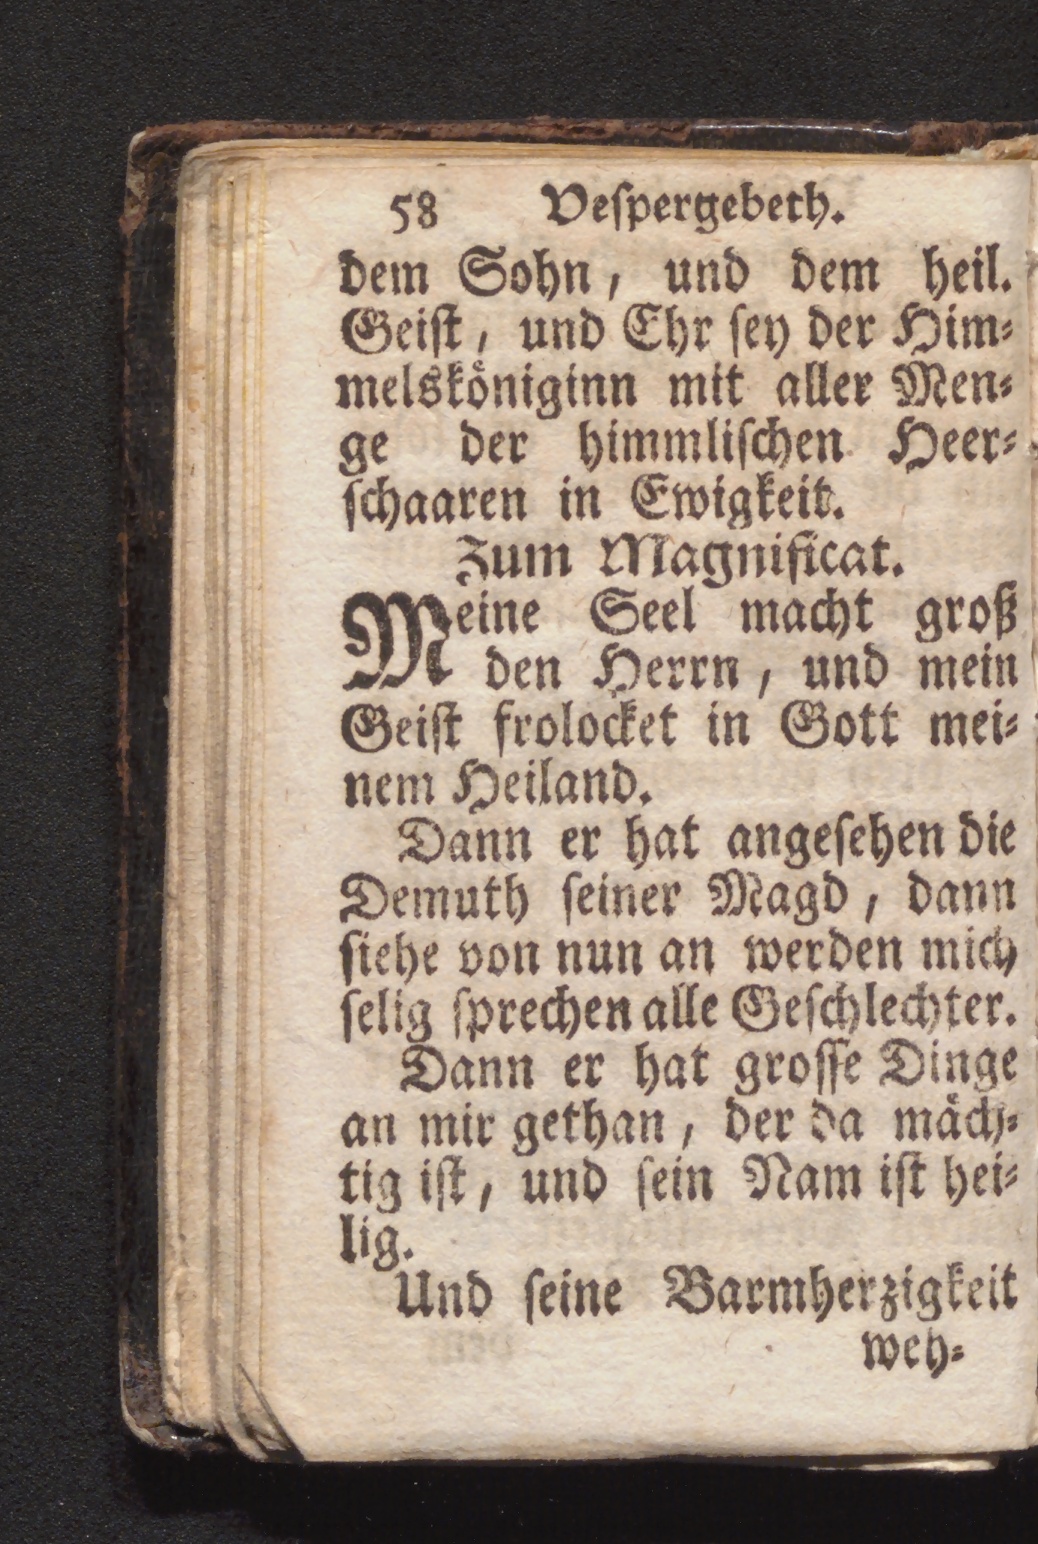 58 Veſpergebeth.
dem Sohn, und dem heil.
Geiſt, und Ehr ſey der Him⸗
melsköniginn mit aller Men⸗
ge der himmliſchen Heer⸗
ſchaaren in Ewigkeit.
Zum Magnificat.
Meine Seel macht groß
den Herrn, und mein
Geiſt frolocket in Gott mei⸗
nem Heiland.
Dann er hat angeſehen die
Demuth ſeiner Magd, dann
ſiehe von nun an werden mich
ſelig ſprechen alle Geſchlechter.
Dann er hat groſſe Dinge
an mir gethan, der da mäch⸗
tig iſt, und ſein Nam iſt hei⸗
lig.
Und ſeine Barmherzigkeit
weh⸗